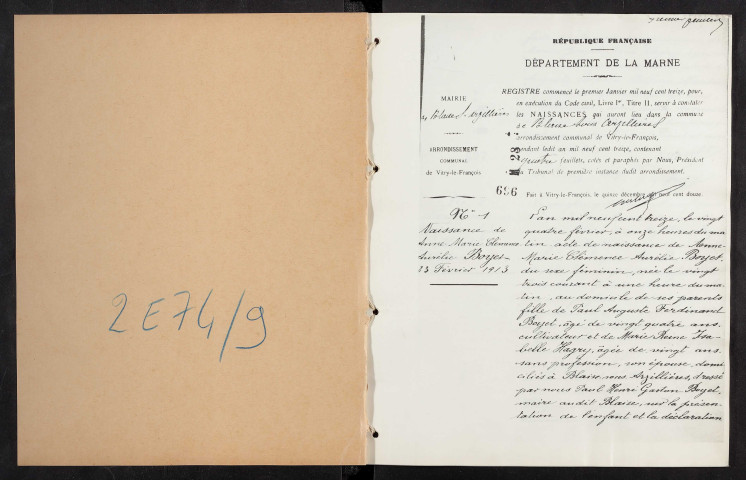 2E74/9
RÉPUBLIQUE FRANÇAISE
DÉPARTEMENT DE LA MARNE
MAIRIE
ARRONDISSEMENT
COMMUNAL
de Vitry-le-François
REGISTRE commencé le premier Janvier mil neuf cent treize, pour,
en exécution du Code civil, Livre Ier, Titre II, servir à constater
les NAISSANCES qui auront lieu dans la commune
de Blaise sous Arzillières
arrondissement communal de Vitry-le-François,
pendant ledit an mil neuf cent treize, contenant
quatre feuillets, cotés et paraphés par Nous, Président
du Tribunal de première instance dudit arrondissement.
696
Fait à Vitry-le-François, le quinze décembre mil neuf cent douze.
No 1
Naissance de
Anne Marie Clémence
Aurélie Boyet
23 Février 1913
L'an mil neuf cent treize, le vingt
quatre février, à onze heures du ma
tin acte de naissance de Anne
Marie Clémence Aurélie Boyet,
du sexe féminin, née le vingt
trois courant à une heure du ma-
tin, au domicile de ses parents
fille de Paul Auguste Ferdinand
Boyet, âgé de vingt quatre ans
cultivateur et de Marie Reine Isa
belle Hagry, âgée de vingt ans
sans profession, son épouse, domi
ciliés à Blaise sous Arzillières, dressé
par nous Paul Henri Gaston Boyet,
maire audit Blaise, sur la présen-
tation de l'enfant et la déclaration